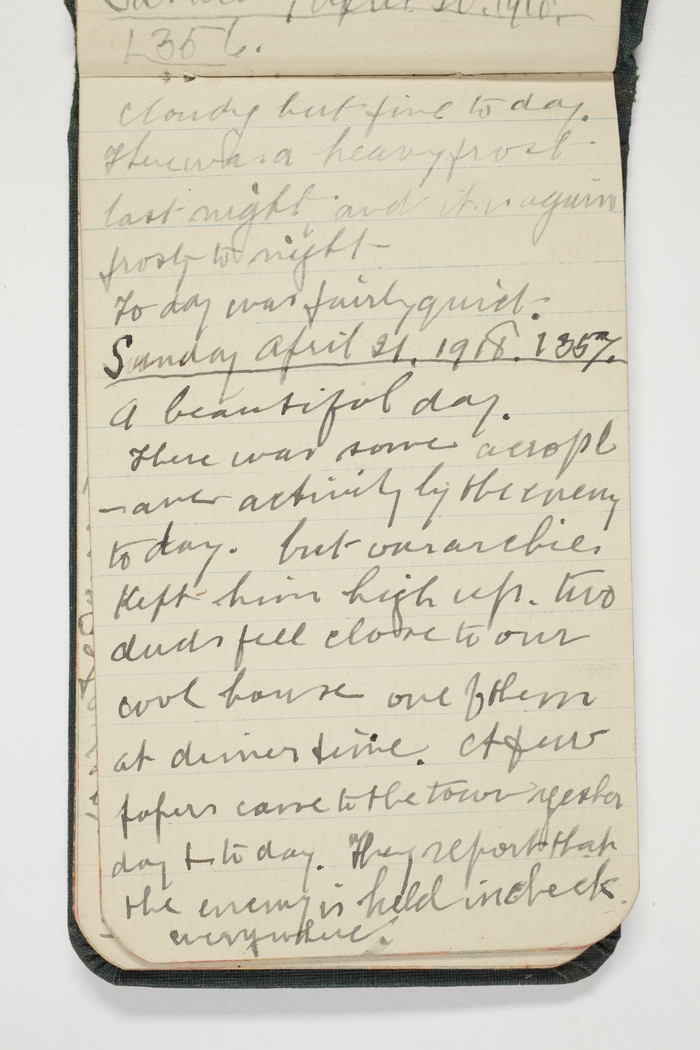 April 20. 1918.
1356.
Cloudy but fine to day.
There was a heavy frost
last night, and it is again
frosty to night
To day was fairly quiet.
Sunday April 21. 1918. 1357.
A beautiful day.
There was some aeropl
-anes activity by the enemy
to day. but our archies
Kept him high up. two
duds fell close to our
cook house one of them
at dinner time. A few
papers came to the town yester
day & to day. They report that
the enemy is held in check
everywhere.